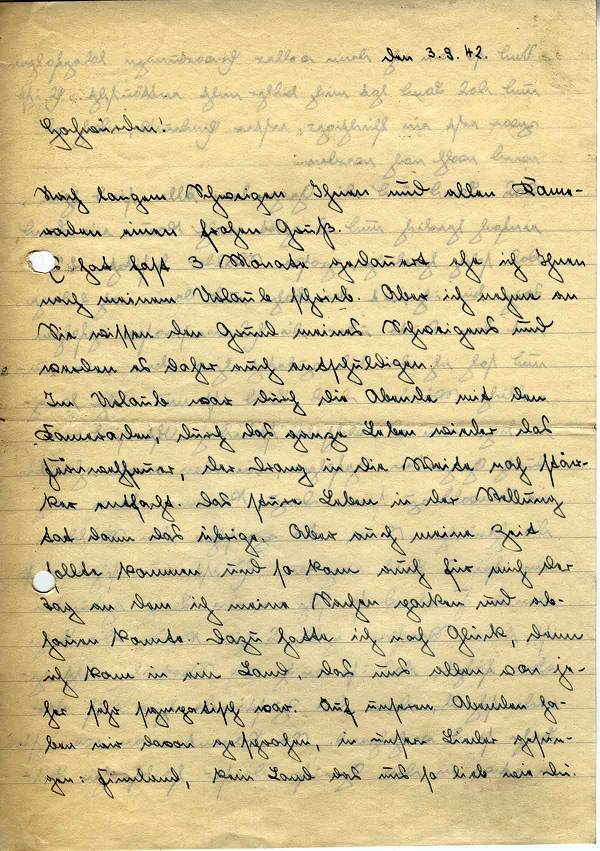 den 3.9.42.
Hochwürden!
Nach langem Schweigen Ihnen und allen Kame-
raden einen frohen Gruß.
Es hat fast 3 Monate gedauert ehe ich Ihnen
nach meinem Urlaub schrieb. Aber ich nehme an
Sie wissen den Grund meines Schweigens und
werden es daher auch entschuldigen.
Im Urlaub war durch die Abende mit den
Kameraden, durch das ganze Leben wieder das
Fernwehfeuer, der Drang in die Weite noch stär-
ker entfacht. Das sture Leben in der Stellung
tat dann das übrige. Aber auch meine Zeit
sollte kommen und so kam auch für mich der
Tag an dem ich meine Sachen packen und ab-
hauen konnte. Dazu hatte ich noch Glück, denn
ich kam in ein Land, das uns allen von je-
her sehr sympatisch war. Auf unseren Abenden ha-
ben wir davon gesprochen, in unsern Lieder gesun-
gen: Finnland, kein Land das uns so lieb wie du.